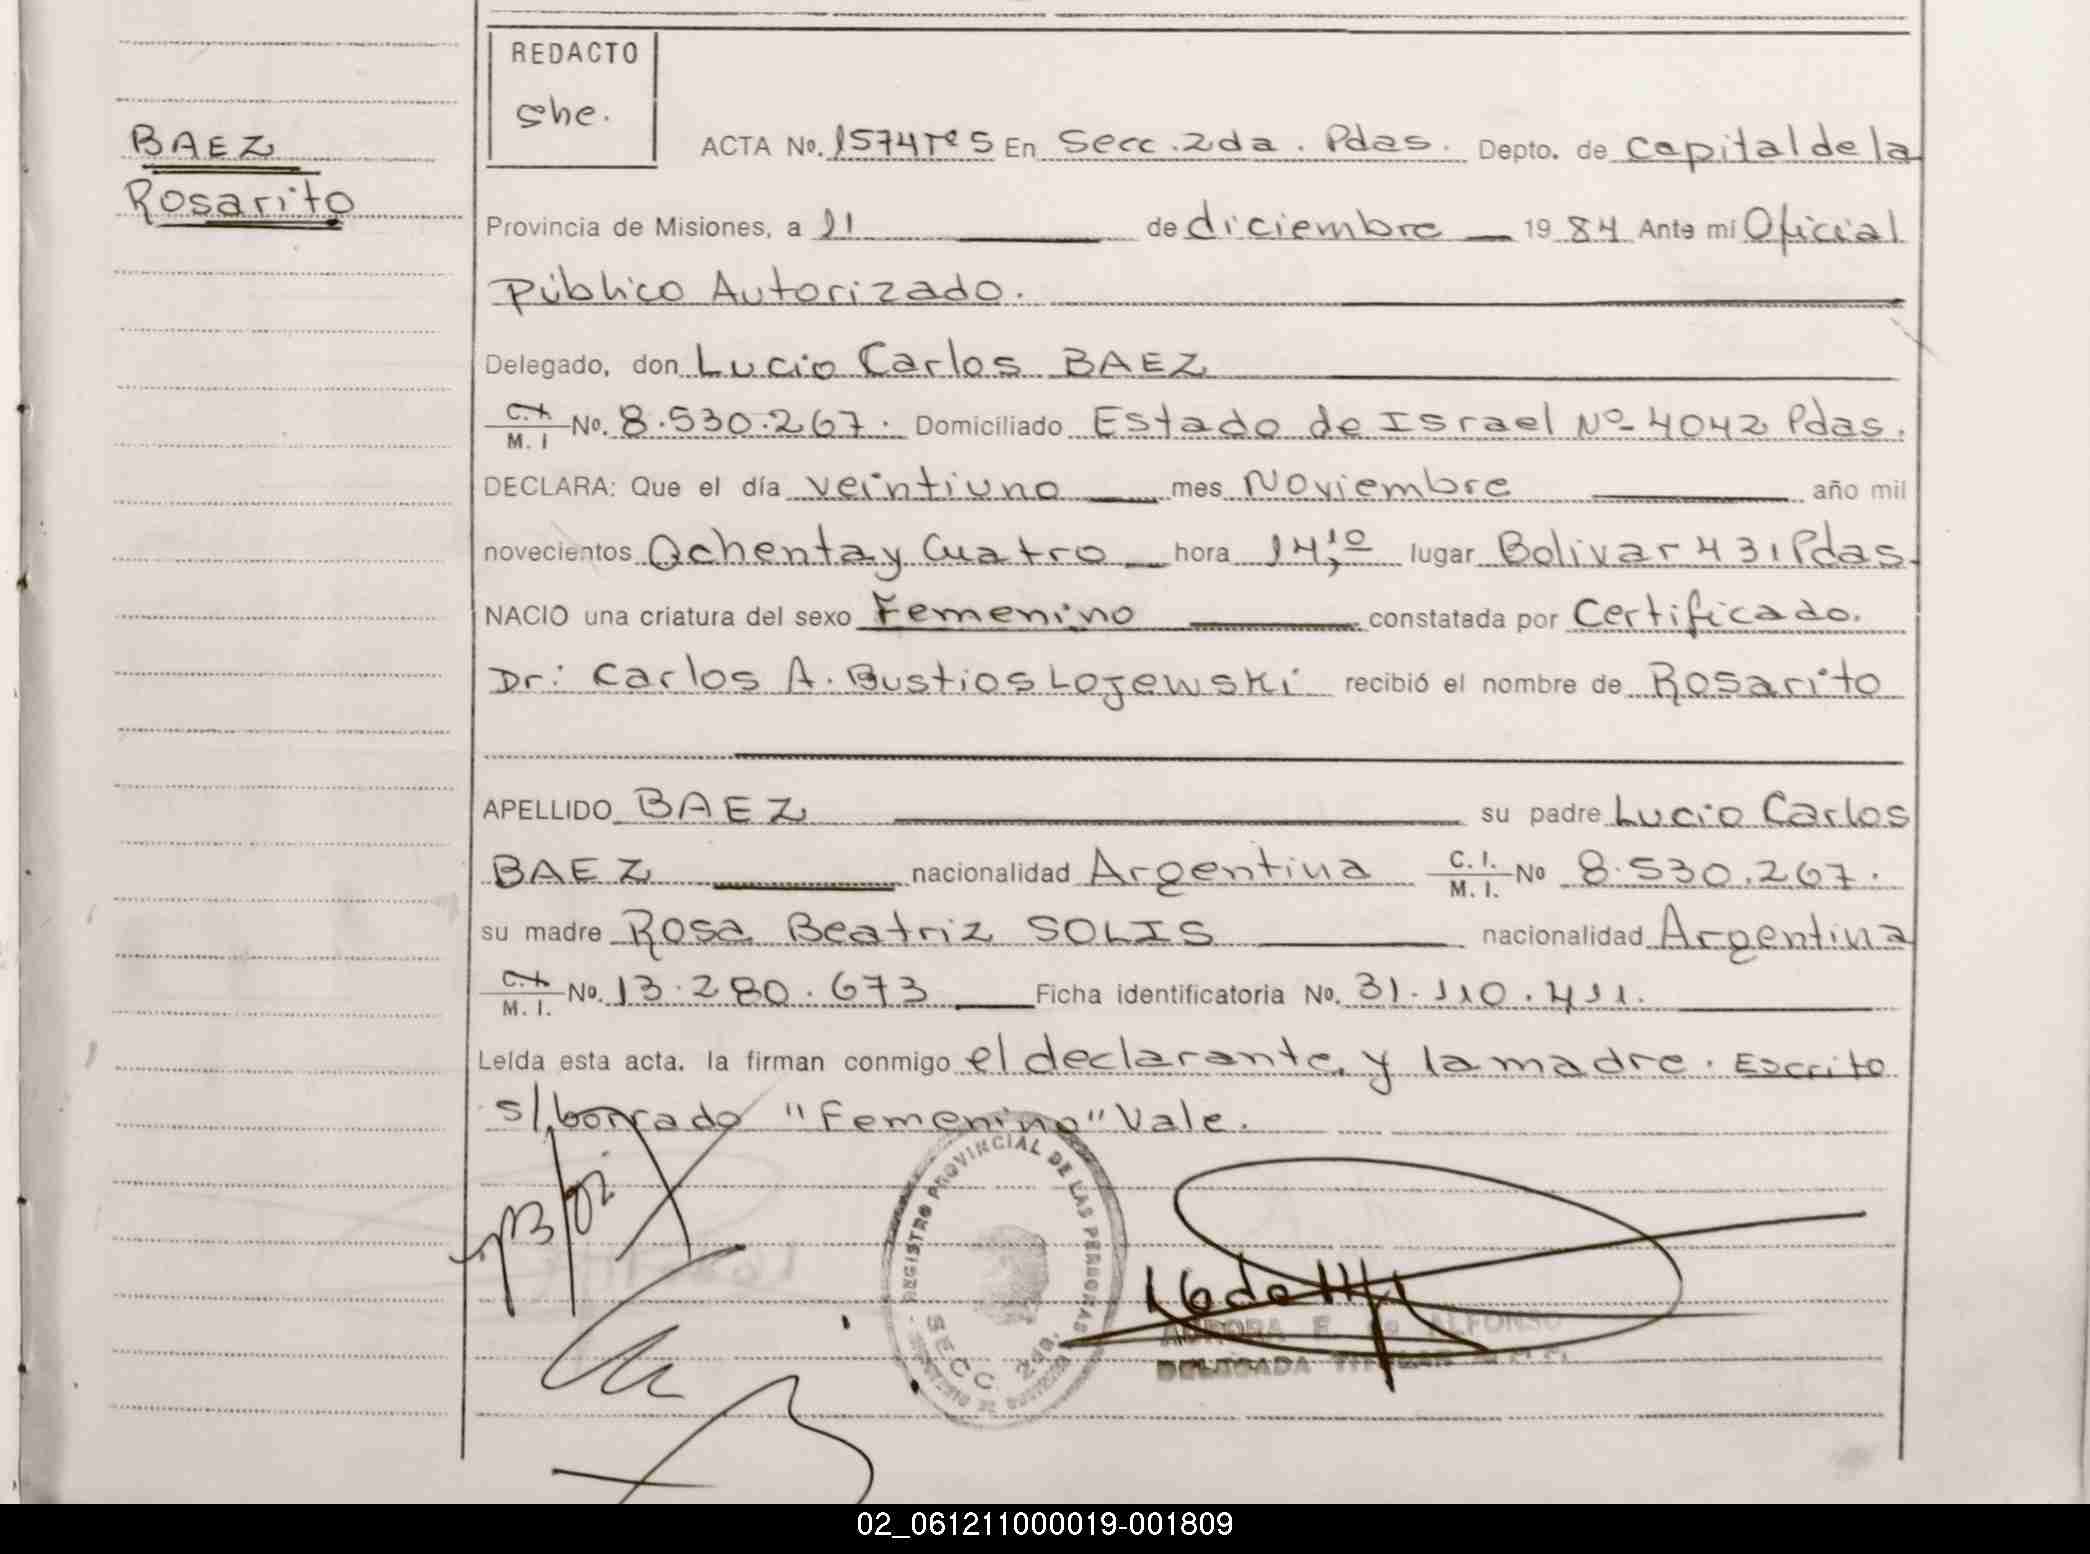 REDACTO
she.
BAEZ
Rosarito
ACTA No. 1574Tº5 En Secc. 2da. Pdas. Depto. de Capital de la
Provincia de Misiones, a 11 de diciembre 1984 Ante mí Oficial
Público Autorizado.
Delegado, don Lucio Carlos BAEZ
C.I. M. I No. 8.530.267. Domiciliado Estado de Israel Nº 4042 Pdas.
DECLARA: Que el día veintiuno mes Noviembre año mil
novecientos Ochenta y Cuatro hora 14,10 lugar Bolivar 431 Pdas.
NACIO una criatura del sexo Femenino constatada por Certificado.
Dr: Carlos A. Bustios Lojewski recibió el nombre de Rosarito
APELLIDO BAEZ su padre Lucio Carlos
BAEZ nacionalidad Argentina C. I. M. I. No 8.530.267.
su madre Rosa Beatriz SOLIS nacionalidad Argentina
C.I. M. I. No. 13.280.673 Ficha identificatoria No. 31.110.411.
Leída esta acta. la firman conmigo el declarante y la madre. Escrito
s/borrado "Femenino" Vale.
REGISTRO PROVINCIAL DE LAS PERSONAS
SECC. 2da.
AURORA F. de ALFONSO
DELEGADA TITULAR
02_061211000019-001809